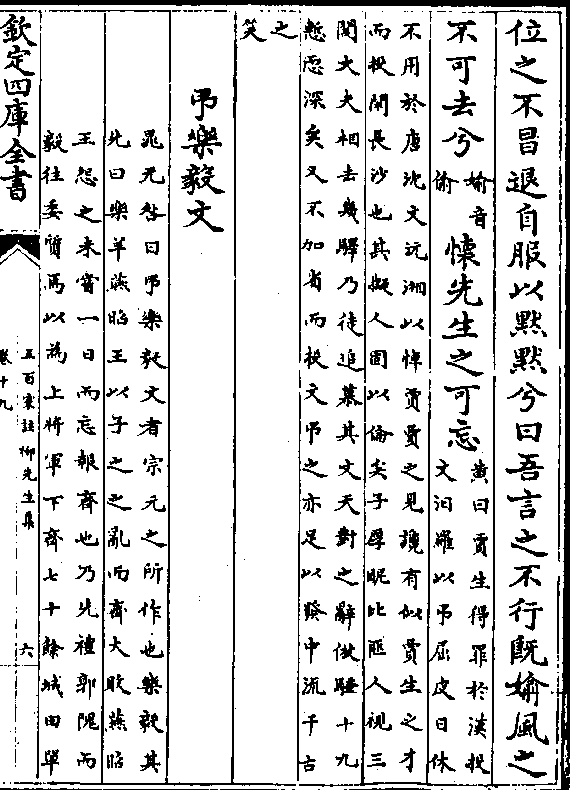 位之不昌退自服以默默兮曰吾言之不行既媮風之
不可去兮媮音偷懐先生之可忘黄曰賈生得罪於漢投文汨羅以弔屈皮日休
不用於唐沈文沅湘以悼賈賈之見讒有似賈生之才
而投閒長沙也其擬人固以倫矣子厚昵比匪人視三
閭大夫相去幾驛乃徒追慕其文天對之辭僕騷十九
慙恧深矣又不加省而投文弔之亦足以發中流千古
之
笑
弔樂毅文
晁无咎曰弔樂毅文者宗元之所作也樂毅其
先曰樂羊燕昭王以子之之亂而齊大敗燕昭
王怨之未嘗一日而忘報齊也乃先禮郭隗而
毅往委質焉以為上將軍下齊七十餘城田單
欽定四庫全書
五百家註柳先生集
卷十九
六